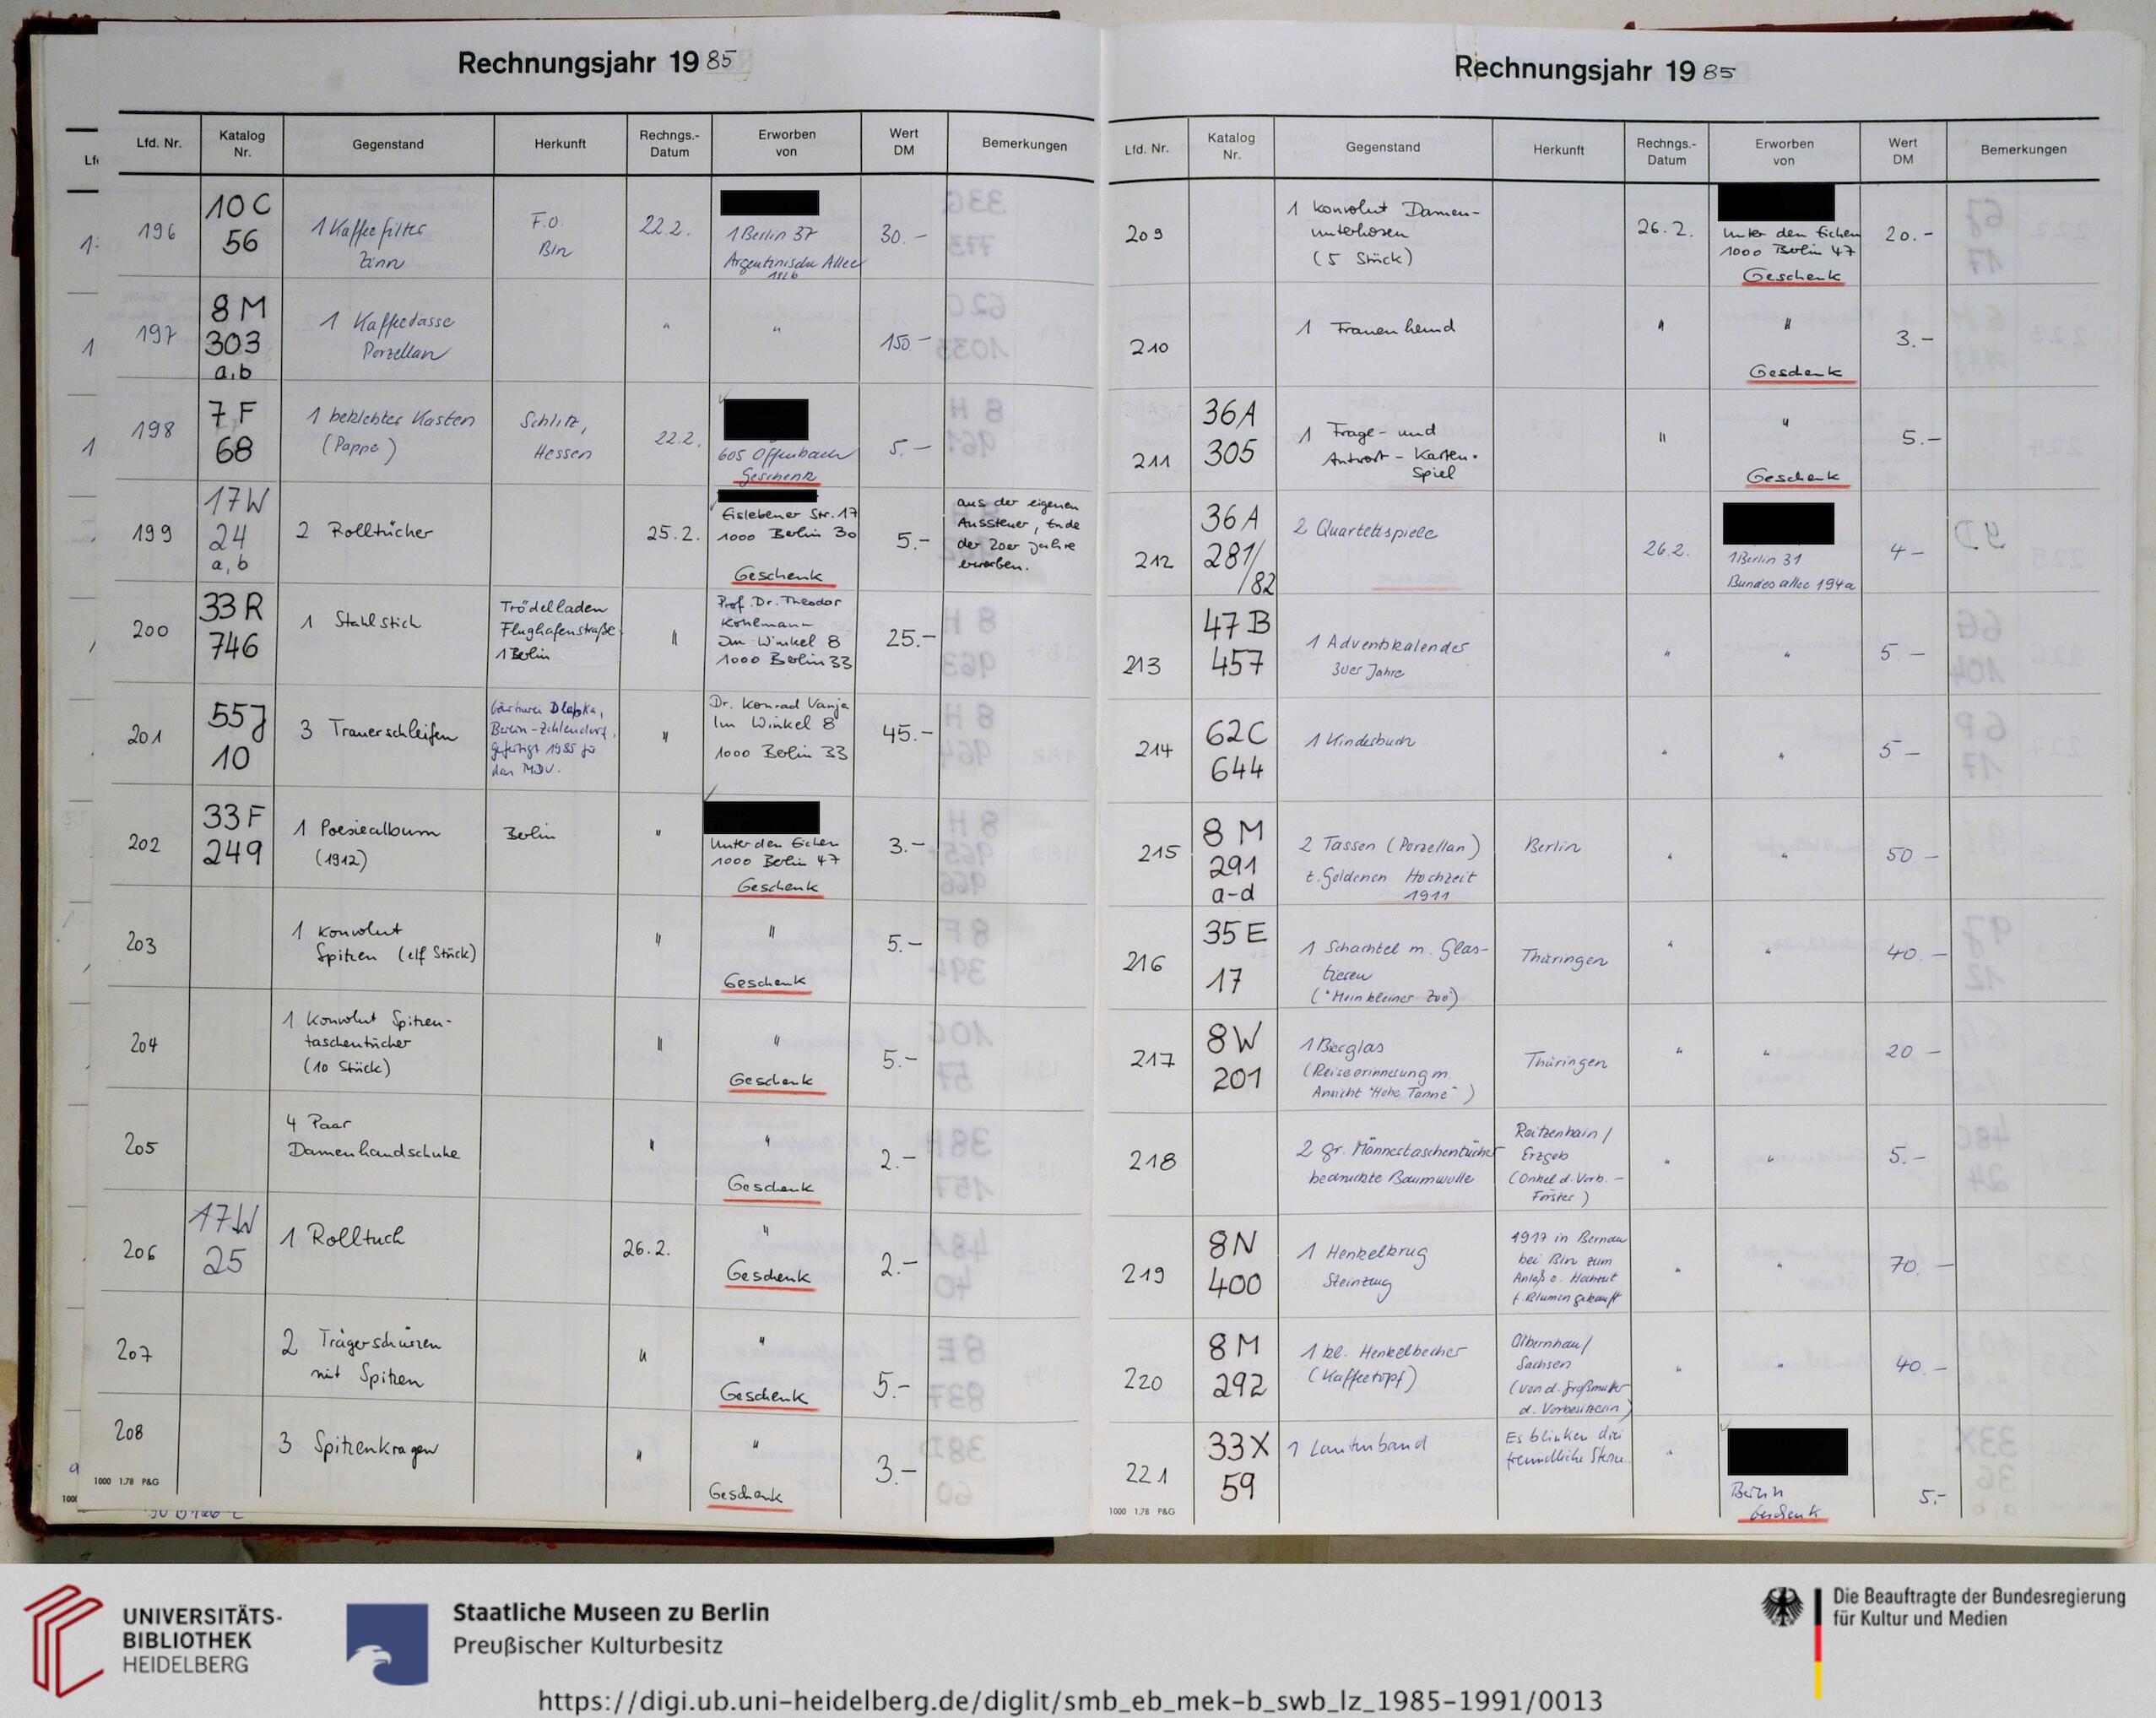 Rechnungsjahr 1985
Lfd. Nr.
Katalog Nr.
Gegenstand
Herkunft
Rechngs.-Datum
Erworben von
Wert DM
Bemerkungen
196
10 C
56
1 Kaffeefilter
Zinn
F.O.
Bln
22.2.
1 Berlin 37
Argentinische Allee
30.-
197
8 M
303
a,b
1 Kaffeetasse
Porzellan
"
"
150.-
198
7 F
68
1 beklebter Kasten
(Pappe)
Schlitz,
Hessen
22.2.
605 Offenbach
Geschenk
5.-
199
17 W
24
a, b
2 Rolltücher
25.2.
Eislebener Str. 17
1000 Berlin 30
Geschenk
5.-
aus der eigenen
Aussteuer, Ende
der 20er Jahre
erworben.
200
33 R
746
1 Stahlstich
Trödelladen
Flughafenstraße
1 Berlin
"
Prof. Dr. Theodor
Kohlmann
Im Winkel 8
1000 Berlin 33
25.-
201
55 J
10
3 Trauerschleifen
Berlin-Zehlendorf,
gefertigt 1985 für
das MDV.
"
Dr. Konrad Vanja
Im Winkel 8
1000 Berlin 33
45.-
202
33 F
249
1 Poesiealbum
(1912)
Berlin
"
Unter den Eichen
1000 Berlin 47
Geschenk
3.-
203
1 Konvolut
Spitzen (elf Stück)
"
"
Geschenk
5.-
204
1 Konvolut Spitzen-
taschentücher
(10 Stück)
"
"
Geschenk
5.-
205
4 Paar
Damenhandschuhe
"
"
Geschenk
2.-
206
17 W
25
1 Rolltuch
26.2.
"
Geschenk
2.-
207
2 Trägerschürzen
mit Spitzen
"
"
Geschenk
5.-
208
3 Spitzenkragen
"
"
Geschenk
3.-
1000 1.78 P&G
Rechnungsjahr 1985
Lfd. Nr.
Katalog Nr.
Gegenstand
Herkunft
Rechngs.-Datum
Erworben von
Wert DM
Bemerkungen
209
1 Konvolut Damen-
unterhosen
(5 Stück)
26.2.
Unter den Eichen
1000 Berlin 47
Geschenk
20.-
210
1 Frauenhemd
"
"
Geschenk
3.-
211
36 A
305
1 Frage- und
Antwort - Karten-
Spiel
"
"
Geschenk
5.-
212
36 A
281/
/82
2 Quartettspiele
26.2.
1 Berlin 31
Bundesallee 194a
4 -
213
47 B
457
1 Adventskalender
30er Jahre
"
"
5 -
214
62 C
644
1 Kinderbuch
"
"
5 -
215
8 M
291
a-d
2 Tassen (Porzellan)
z. Goldenen Hochzeit
1911
Berlin
"
"
50 -
216
35 E
17
1 Schachtel m. Glas-
tieren
("Mein kleiner Zoo")
Thüringen
"
"
40.-
217
8 W
201
1 Bierglas
(Reiseerinnerung m.
Ansicht "Hohe Tanne")
Thüringen
"
"
20 -
218
2 gr. Männertaschentücher
bedruckte Baumwolle
Reitzenhain /
Erzgeb
(Onkel d. Vorb. -
Förster)
"
"
5.-
219
8 N
400
1 Henkelkrug
Steinzeug
1917 in Bernau
bei Bln zum
Anlaß e. Hochzeit
f. Blumen gekauft
"
"
70.-
220
8 M
292
1 kl. Henkelbecher
(Kaffeetopf)
Olbernhau/
Sachsen
(von d. Großmutter
d. Vorbesitzerin)
"
"
40.-
221
33 X
59
1 Lautenband
Es blinken drei
freundliche Sterne
"
Berlin
Geschenk
5.-
1000 1.78 P&G
UNIVERSITÄTS-
BIBLIOTHEK
HEIDELBERG
Staatliche Museen zu Berlin
Preußischer Kulturbesitz
Die Beauftragte der Bundesregierung
für Kultur und Medien
https://digi.ub.uni-heidelberg.de/diglit/smb_eb_mek-b_swb_lz_1985-1991/0013